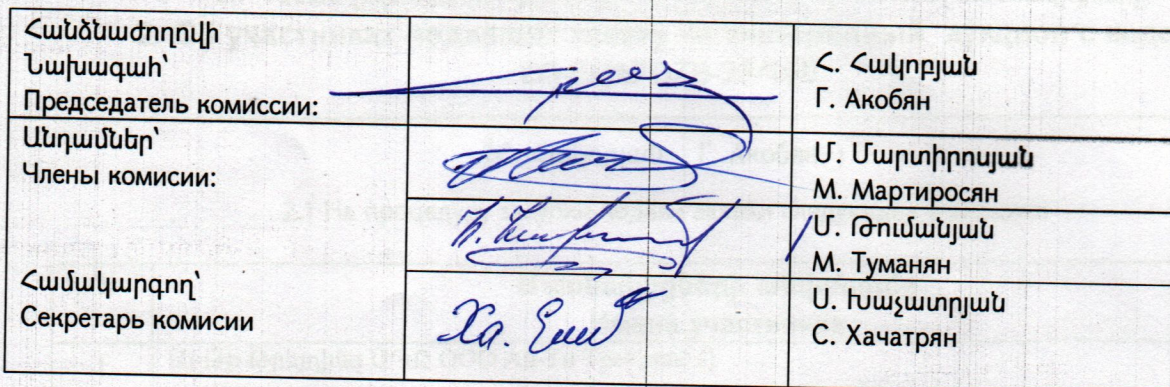 Հանձնաժողովի
Նախագահ՝
Председатель комиссии:
Հ. Հակոբյան
Г. Акобян
Անդամներ՝
Члены комисии:
Մ. Մարտիրոսյան
М. Мартиросян
Մ. Թումանյան
М. Туманян
Համակարգող՝
Секретарь комисии
Ս. Խաչատրյան
С. Хачатрян